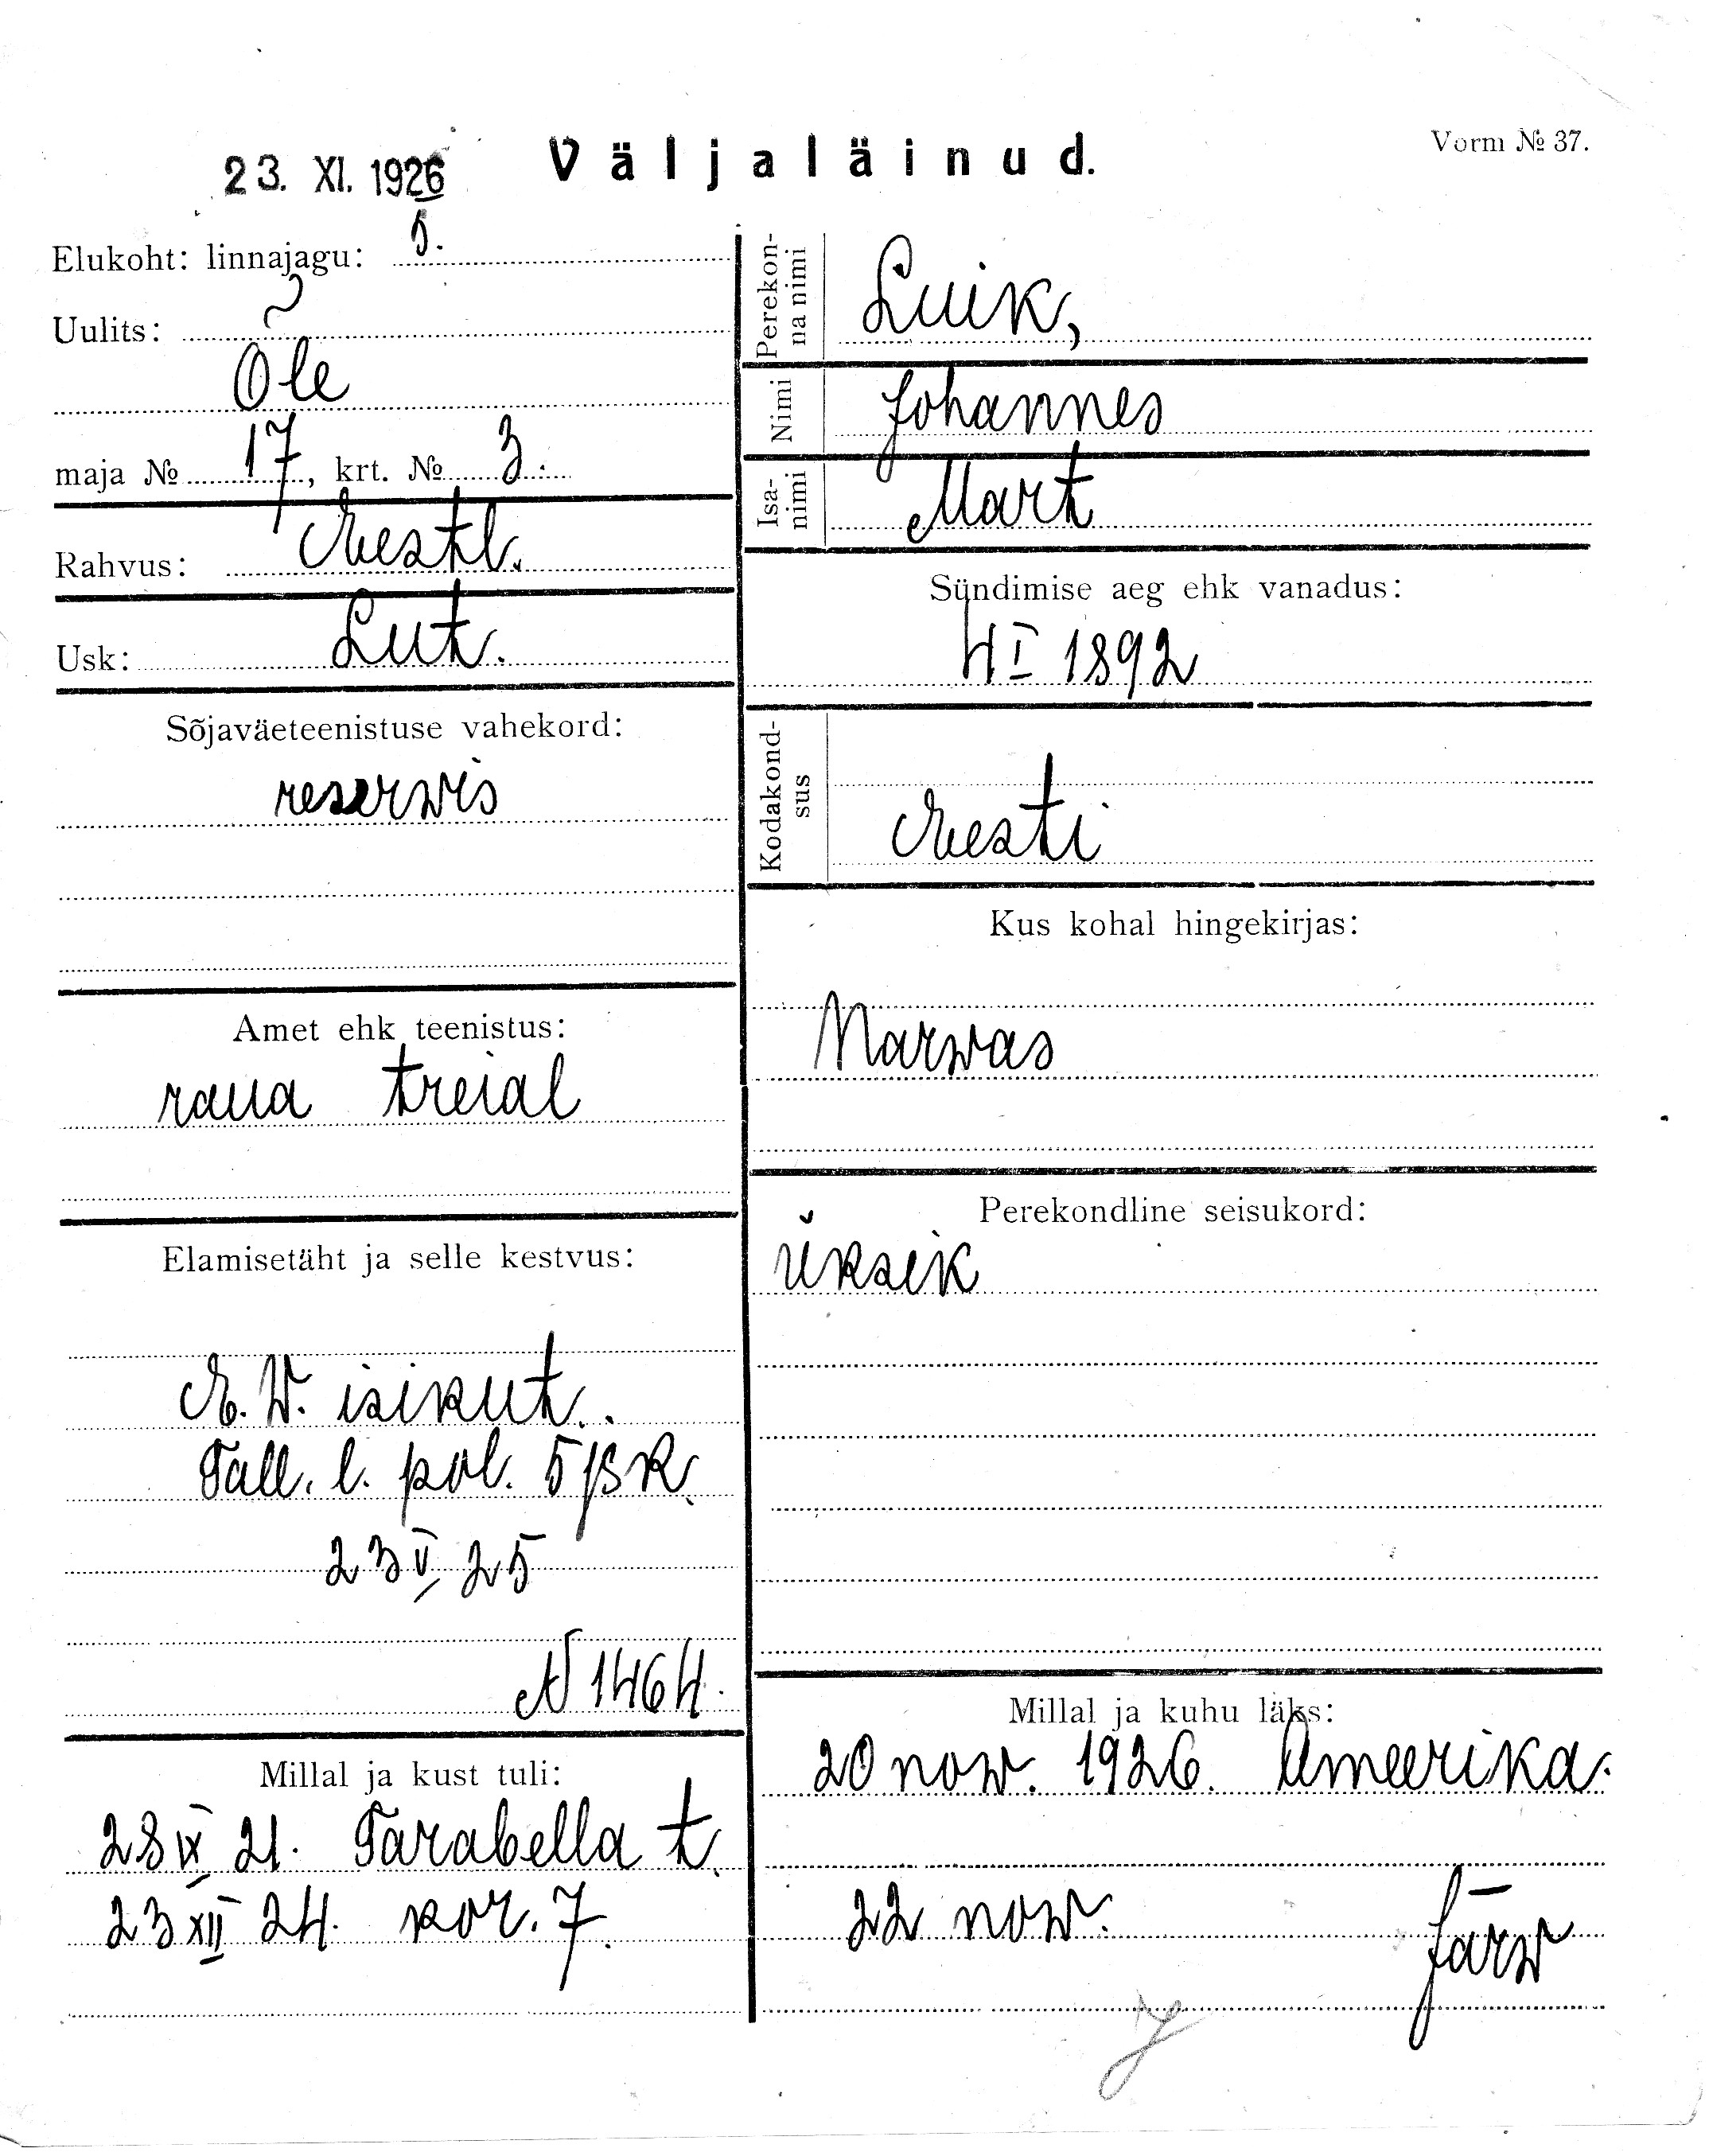 23. XI. 1926
Väljaläinud.
Vorm № 37.
Elukoht: linnajagu: 5.
Uulits:
Õle
maja № 17, krt. № 3.
Rahvus: Eestl.
Usk: Lut.
Sõjaväeteenistuse vahekord:
reserwis
Amet ehk teenistus:
raua treial
Elamisetäht ja selle kestvus:
E. W. isikut.
Tall. l. pol. 5 jsk.
23 V 25
N 1464.
Millal ja kust tuli:
28 IX 21. Tarabella t.
23 XII 24. kor. 7.
Perekon-
na nimi
Luik,
Nimi
Johannes
Isa-
nimi
Mart
Sündimise aeg ehk vanadus:
4 I 1892
Kodakond-
sus
Eesti
Kus kohal hingekirjas:
Narwas
Perekondline seisukord:
üksik
Millal ja kuhu läks:
20 now. 1926. Ameerika.
22 now.
Järw